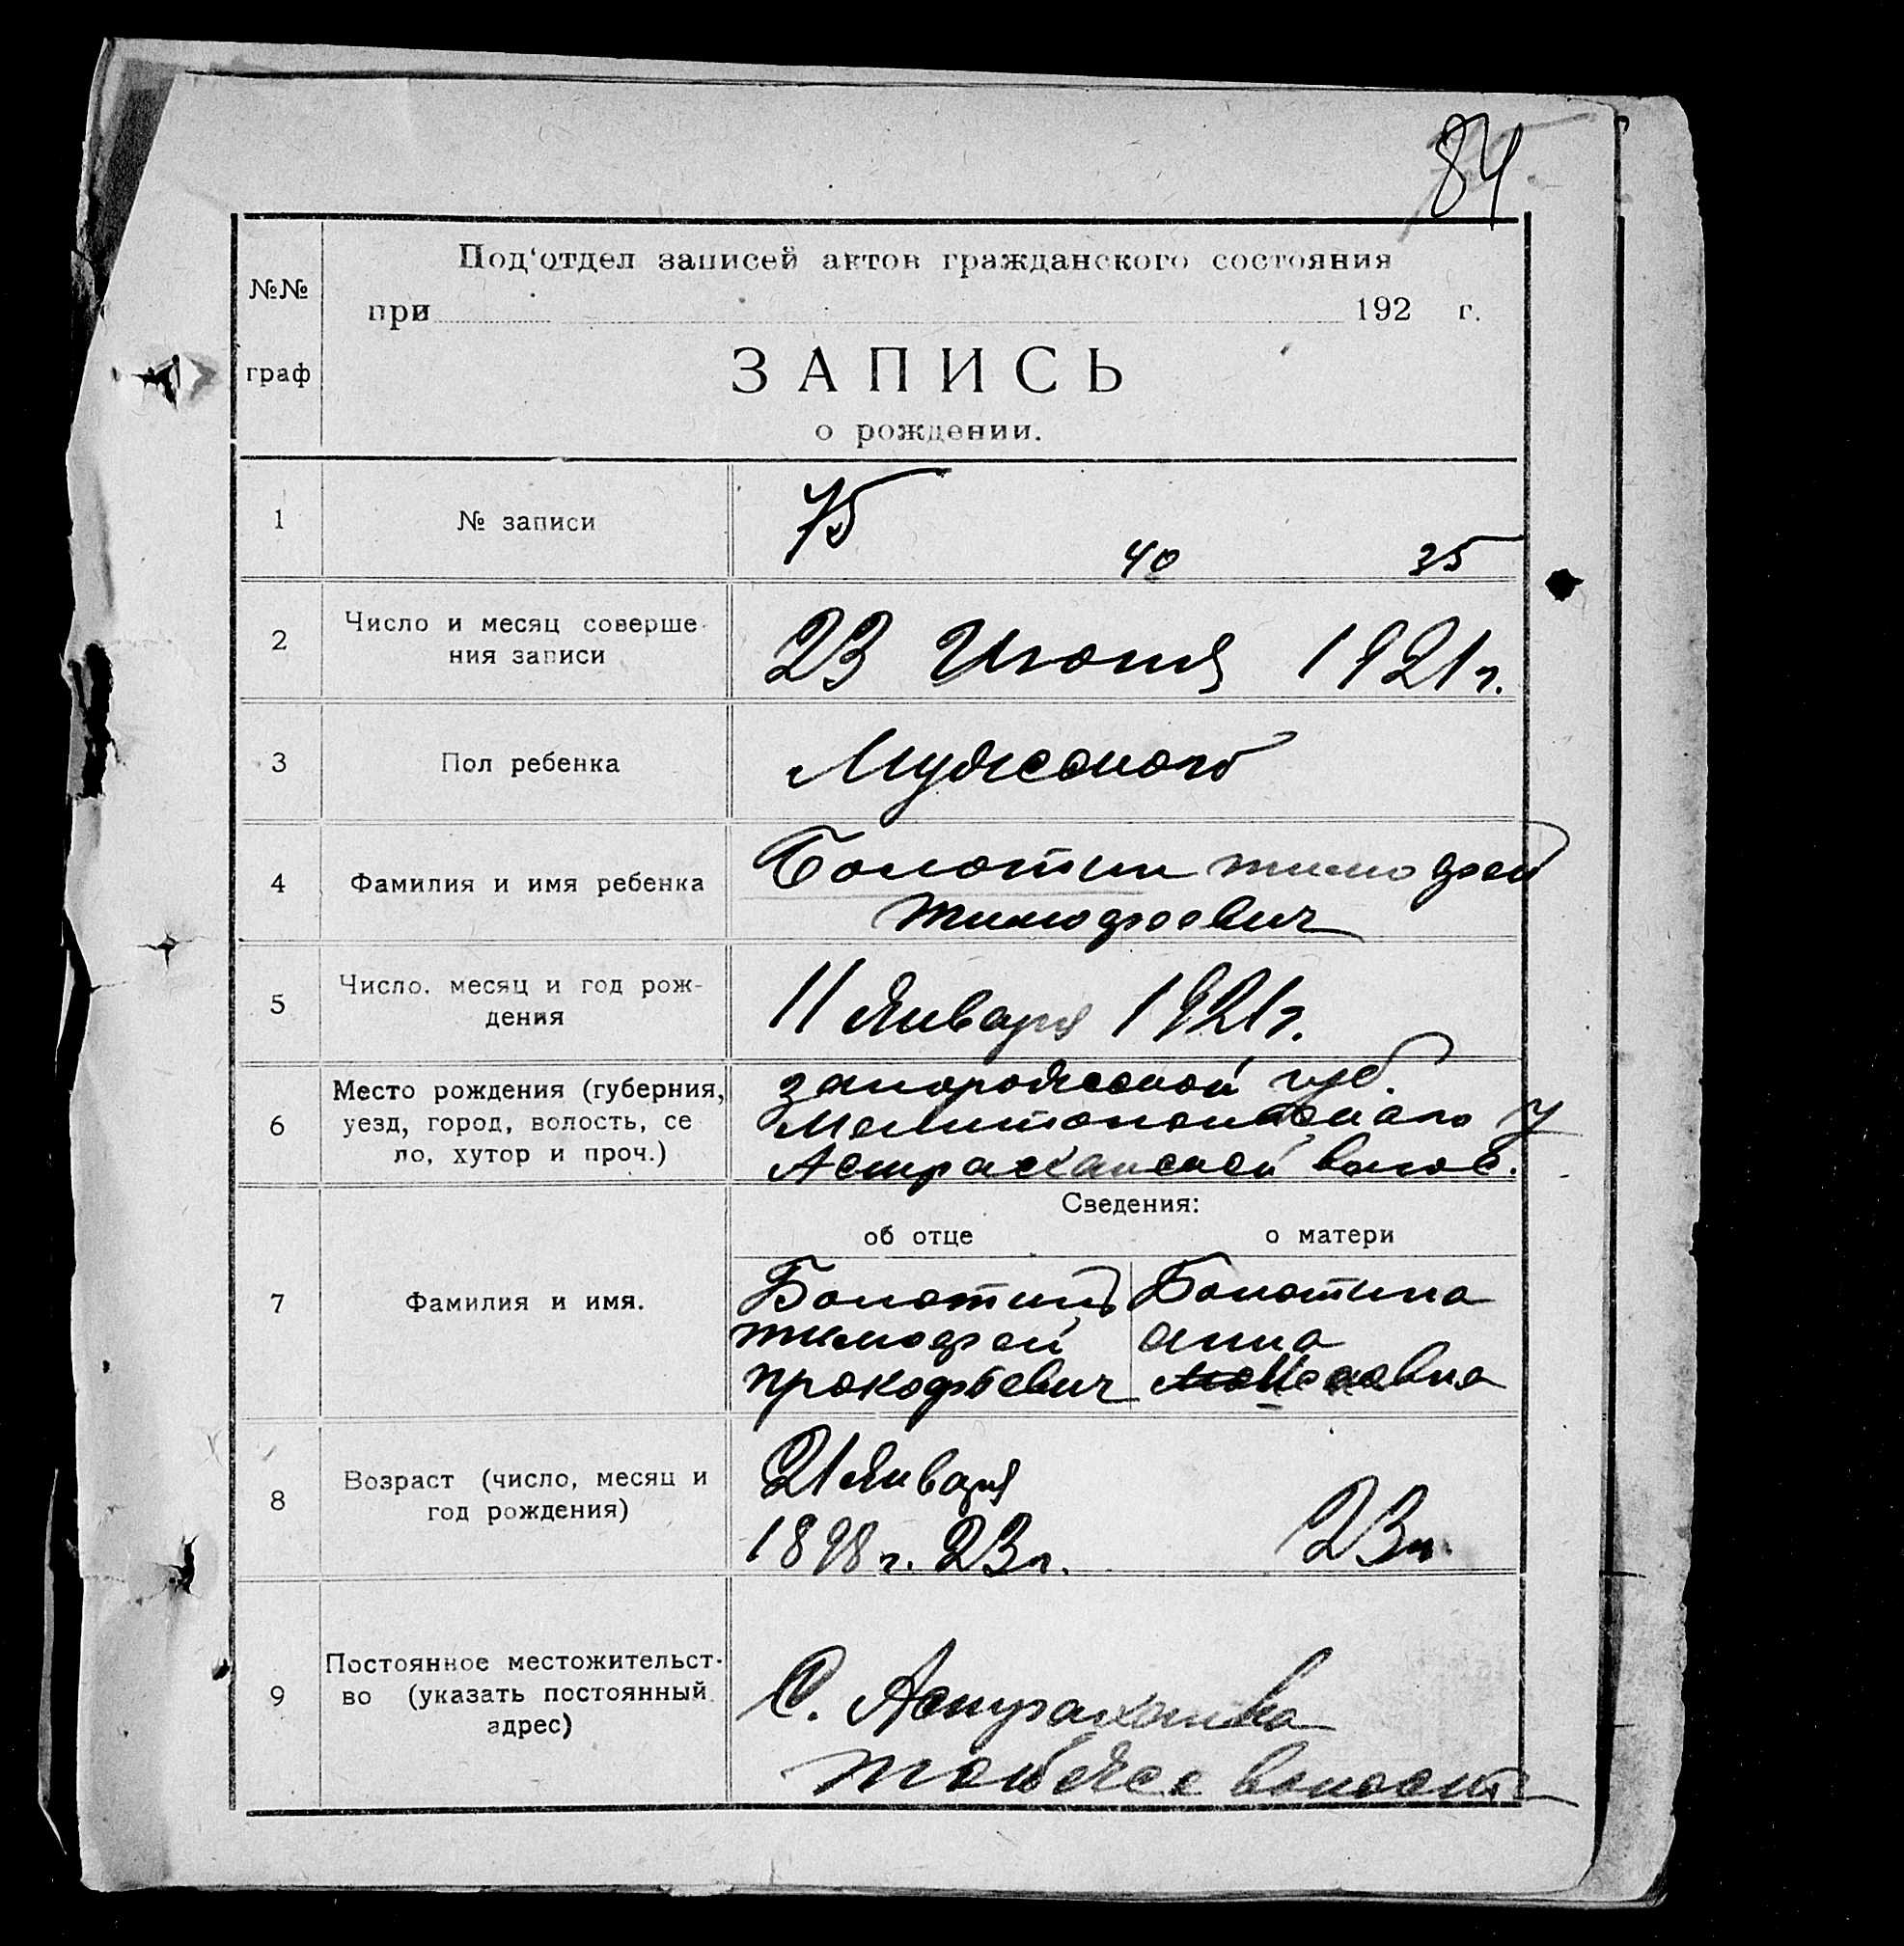 84
№№
граф
Под'отдел записей актов гражданского состояния
при 192 г.
ЗАПИСЬ
о рождении.
1
№ записи
75
40 35
2
Число и месяц соверше-
ния записи
23 Июня 1921 г.
3
Пол ребенка
Мужского
4
Фамилия и имя ребенка
Болотин тимофей
тимофеевич
5
Число, месяц и год рож-
дения
11 Января 1921 г.
6
Место рождения (губерния,
уезд, город, волость, се
ло, хутор и проч.)
запорожской губ.
Мелитопольского у
Астраханской волос.
Сведения:
об отце о матери
7
Фамилия и имя.
Болотин
тимофей
прокофьевич
Болотина
анна
8
Возраст (число, месяц и
год рождения)
21 Января
1898 г. 23 г.
23 г.
9
Постоянное местожительст-
во (указать постоянный
адрес)
С. Астраханка
той же волости